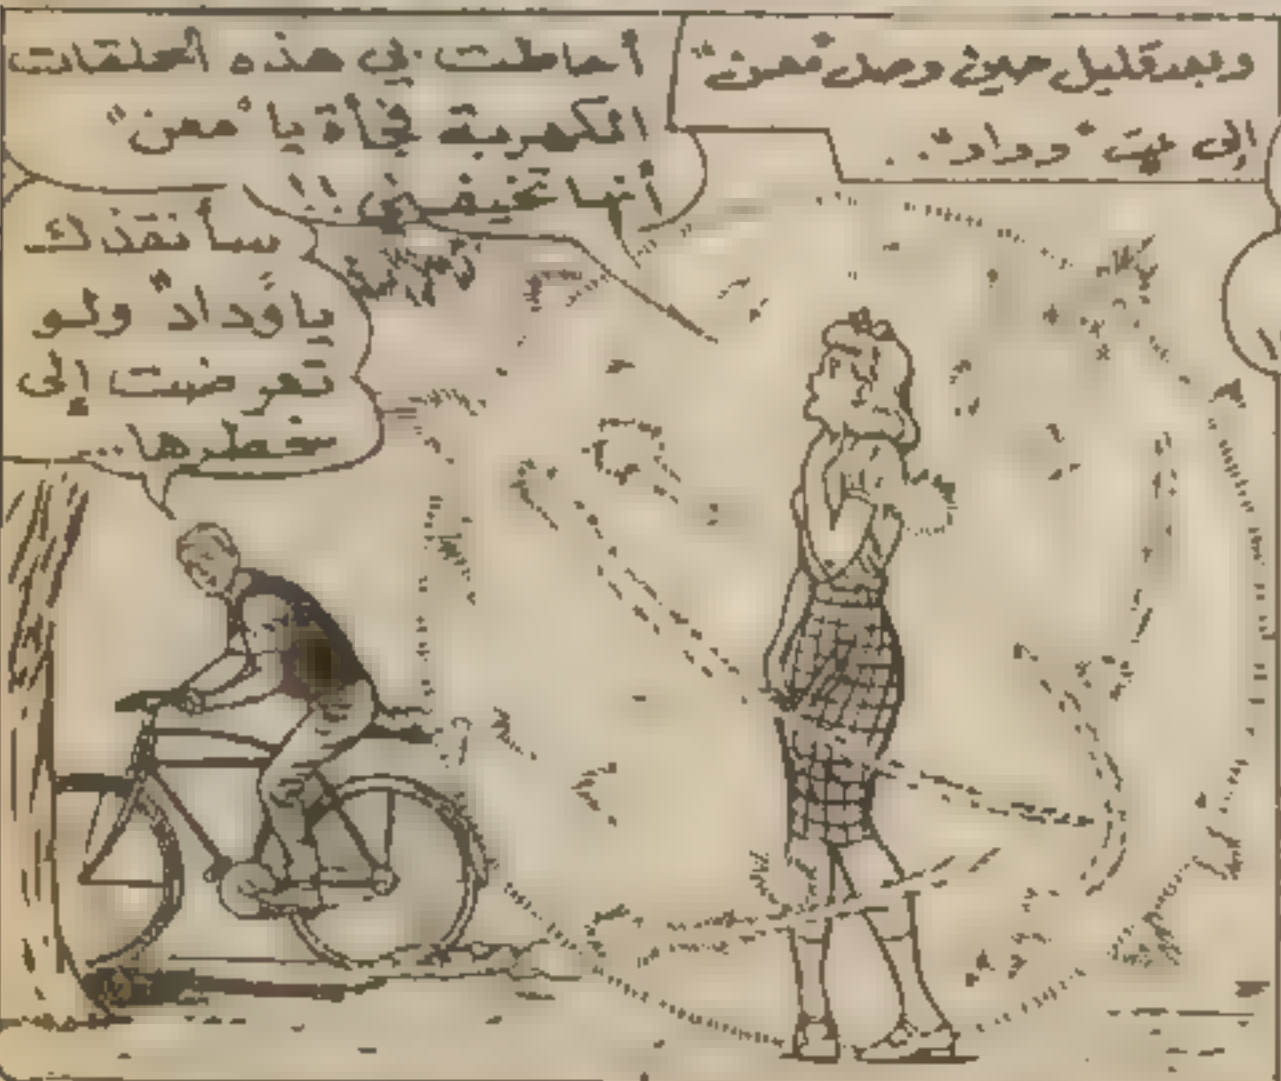 وبعد قليل حين وصل "معن"
إلى بيت "وداد"..
أحاطت بي هذه الحلقات
الكهربية فجأة يا "معن"
أنها تخيفني !!
سأنقذك
يا "وداد" ولو
تعرضت إلى
خطرها...